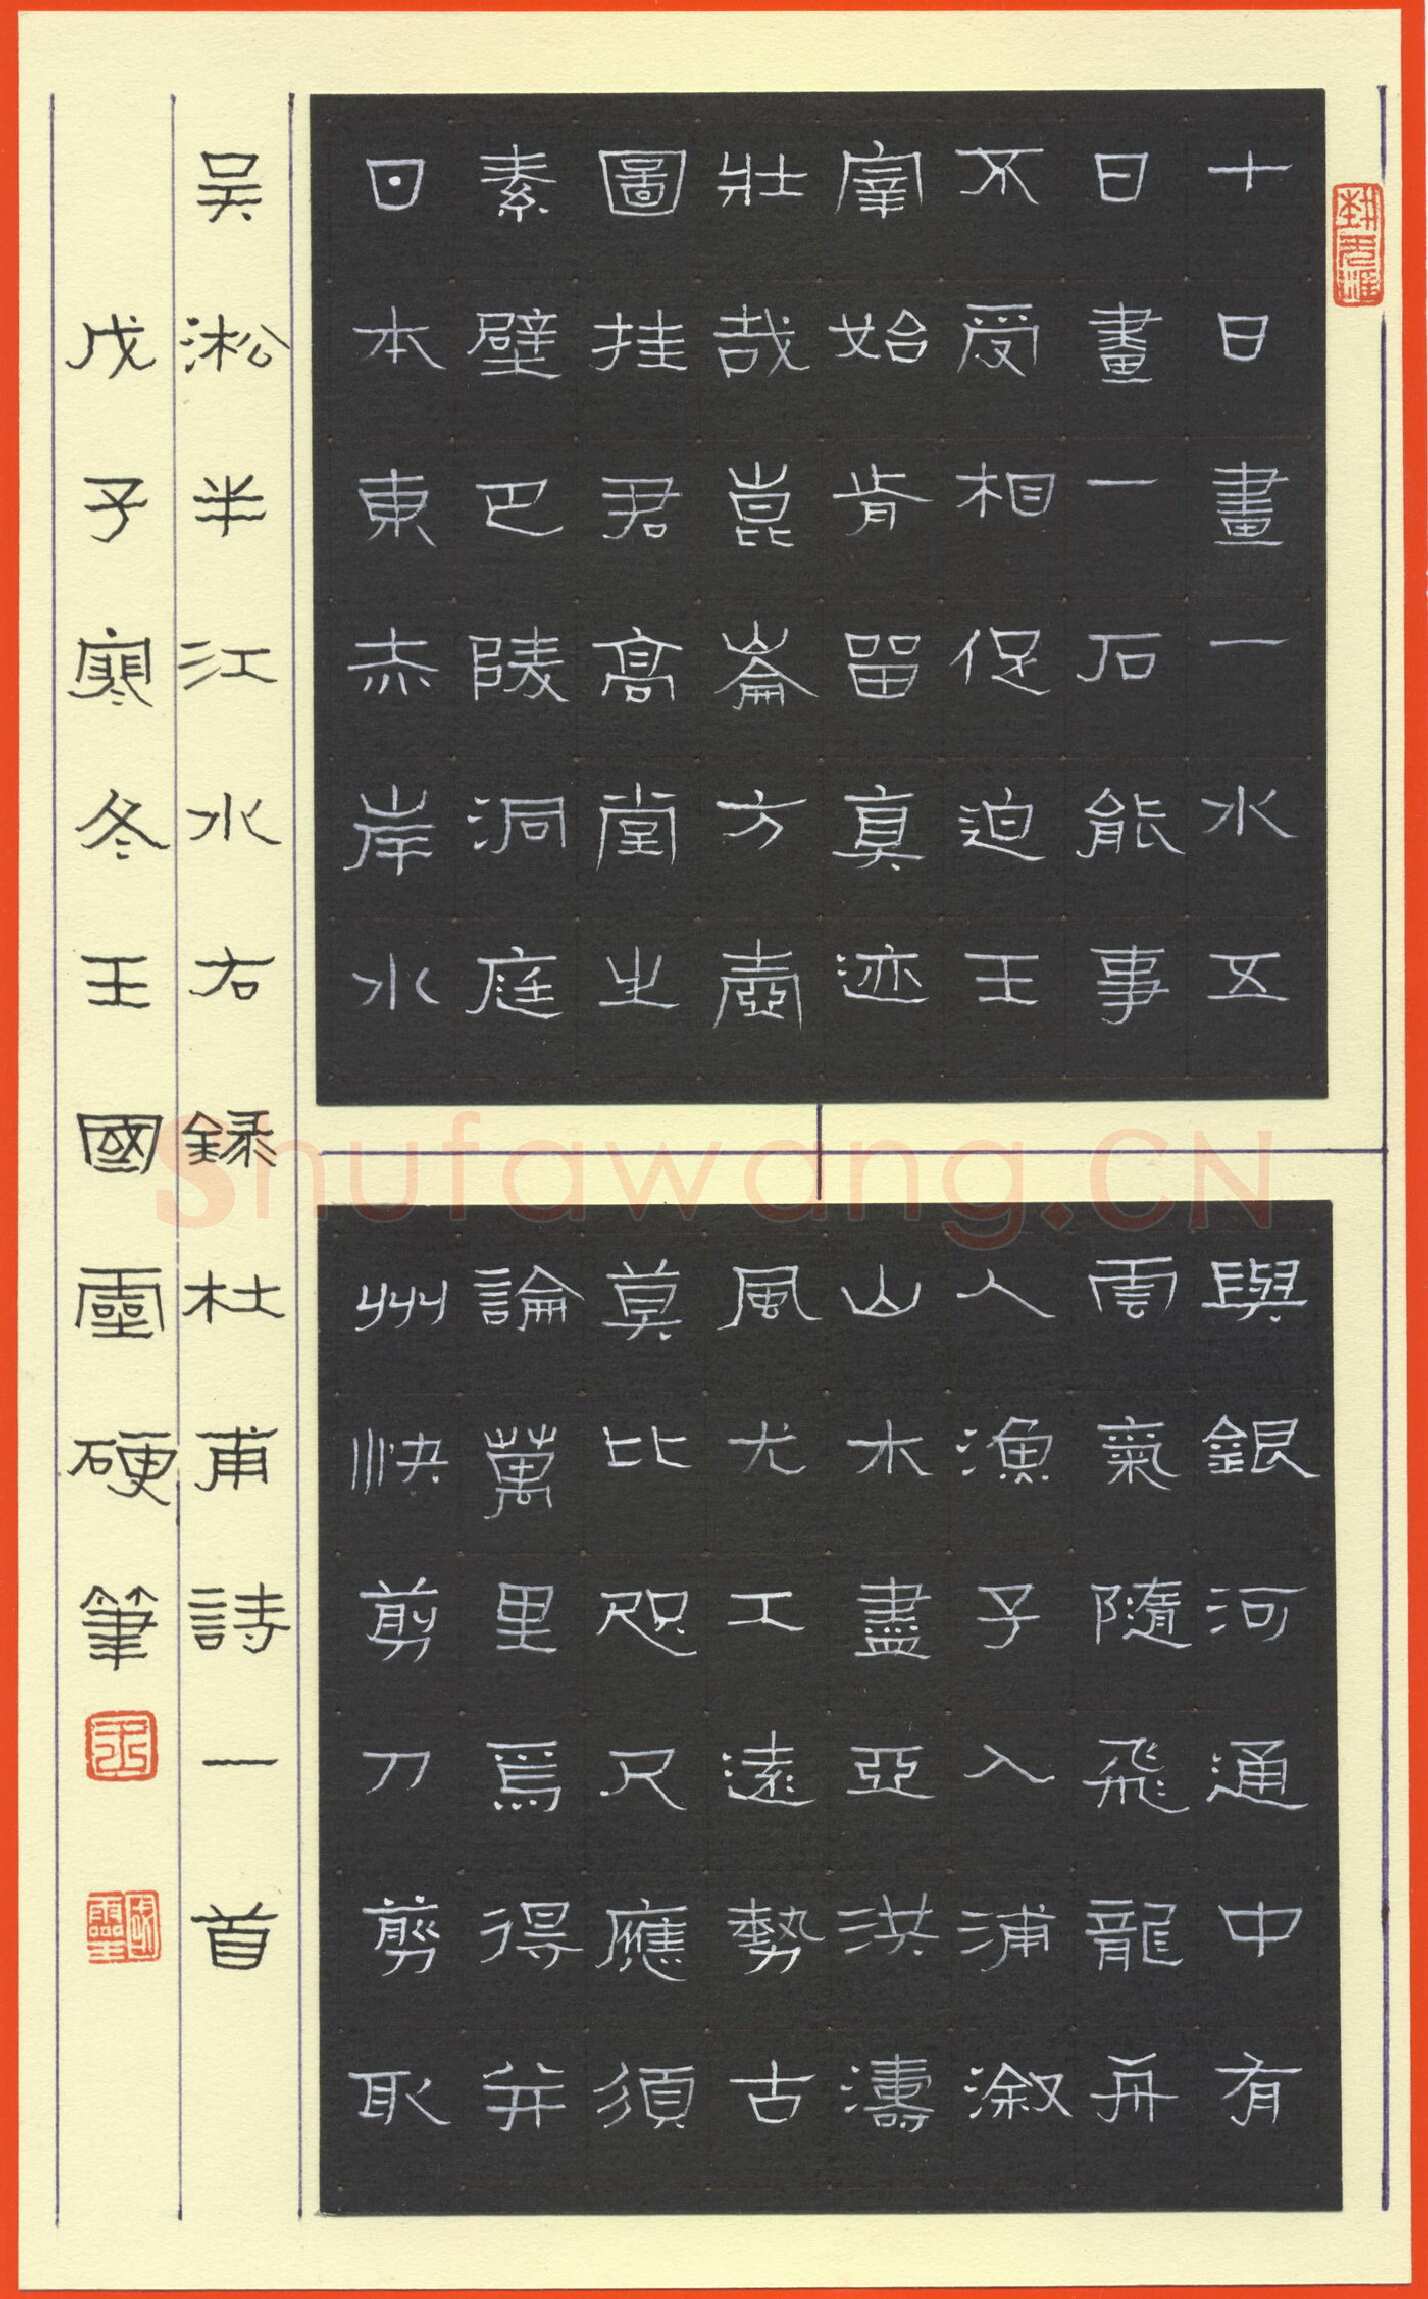 十日畫一水五
日畫一石能事
不受相促迫王
宰始肯留真迹
壯哉崑崙方壺
圖挂君高堂之
素壁巴陵洞庭
日本東赤岸水
與銀河通中有
雲氣隨飛龍舟
人漁子入浦溆
山木盡亞洪濤
風尤工遠勢古
莫比咫尺應須
論萬里焉得并
州快剪刀剪取
吴淞半江水右録杜甫詩一首
戊子寒冬王國靈硬筆
Shufawang.CN